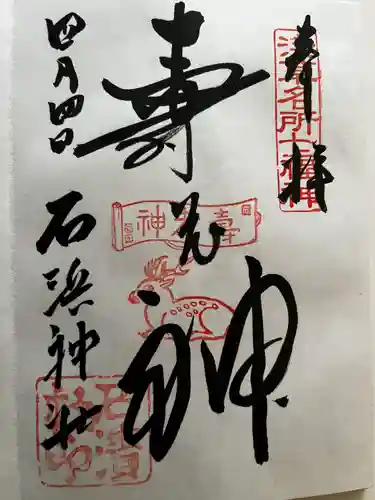 奉拝
浅草名所七福神
寿老神
寿老神
四月四日
石浜神社
石濱